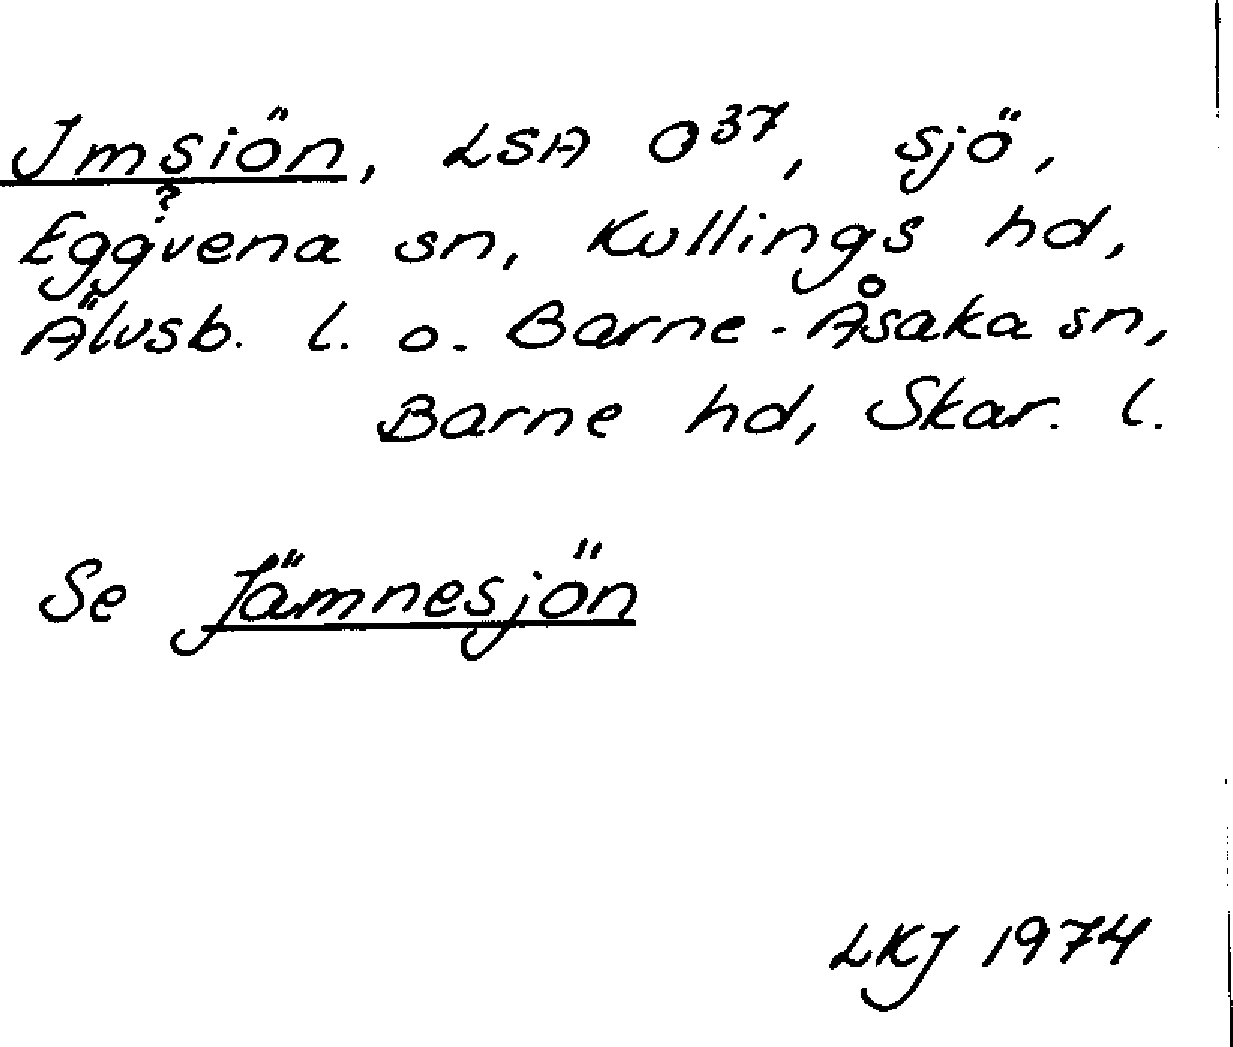 Imsiön, LSA O³⁷, sjö,
?
Eggvena sn, Kullings hd,
Älvsb. l. o. Barne-Åsaka sn,
Barne hd, Skar. l.
Se Jämnesjön
LKJ 1974